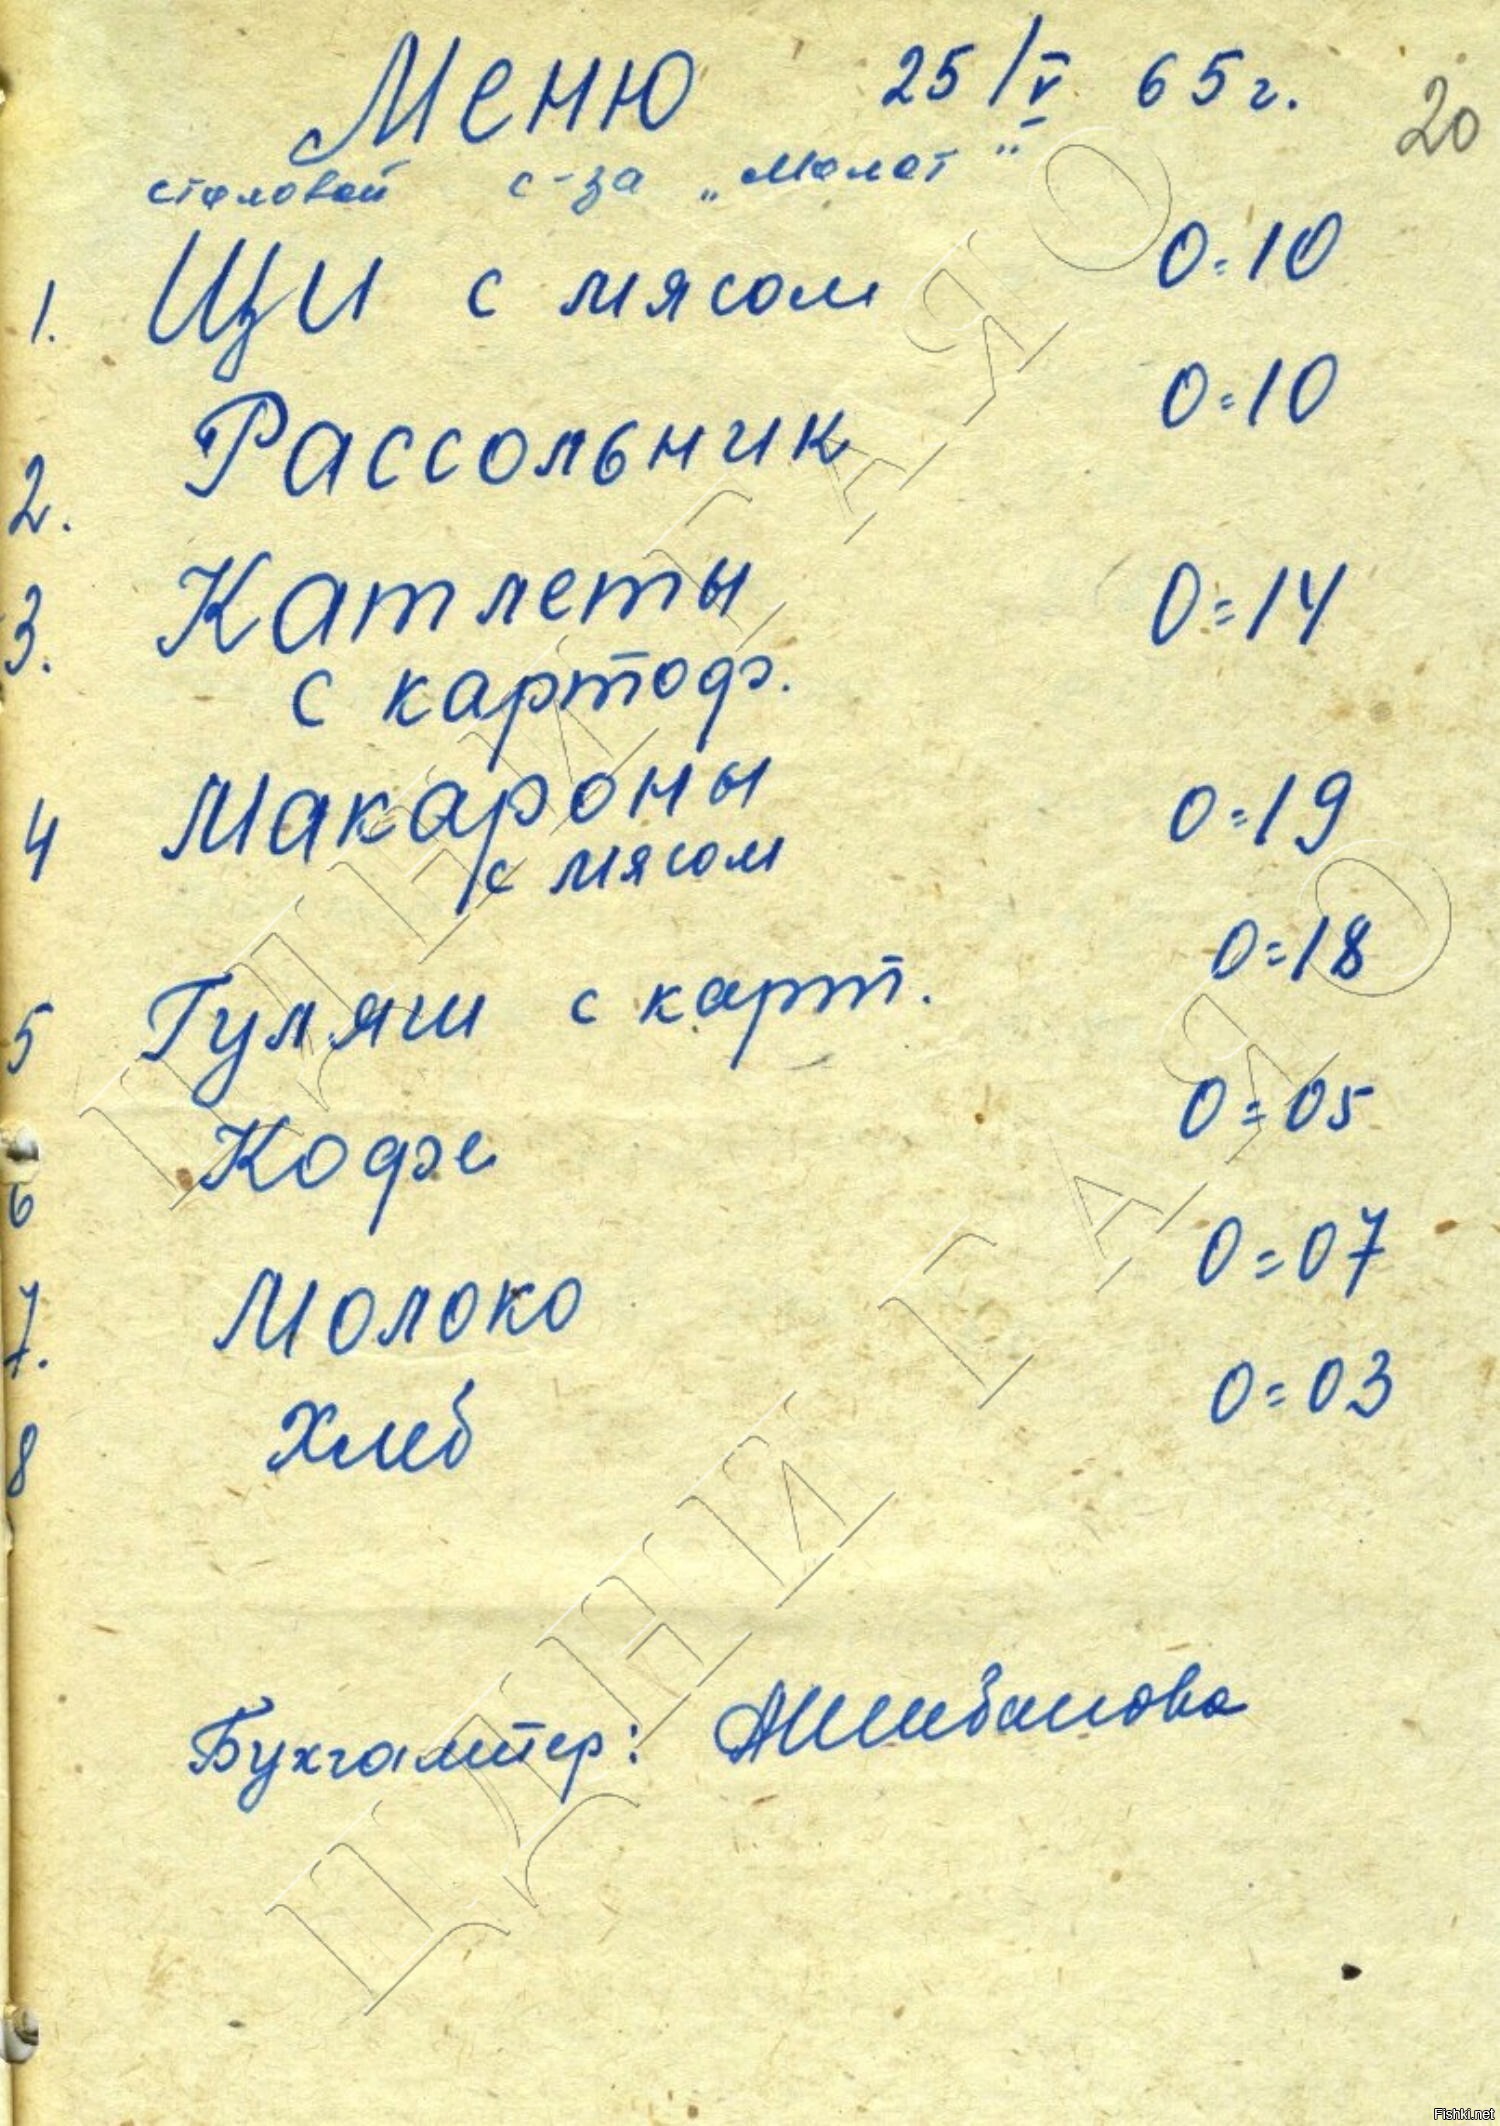 Меню 25/V 65 г.
20
столовой с-за „Молот"
1. Щи с мясом 0=10
2. Рассольник 0=10
3. Катлеты 0=14
с картоф.
4 Макароны 0=19
с мясом
5 Гуляш с карт. 0=18
6 Кофе 0=05
7. Молоко 0=07
8 Хлеб 0=03
Бухгалтер: АШибанова
ЦДНИ ГАЯО
ЦДНИ ГАЯО
Fishki.net